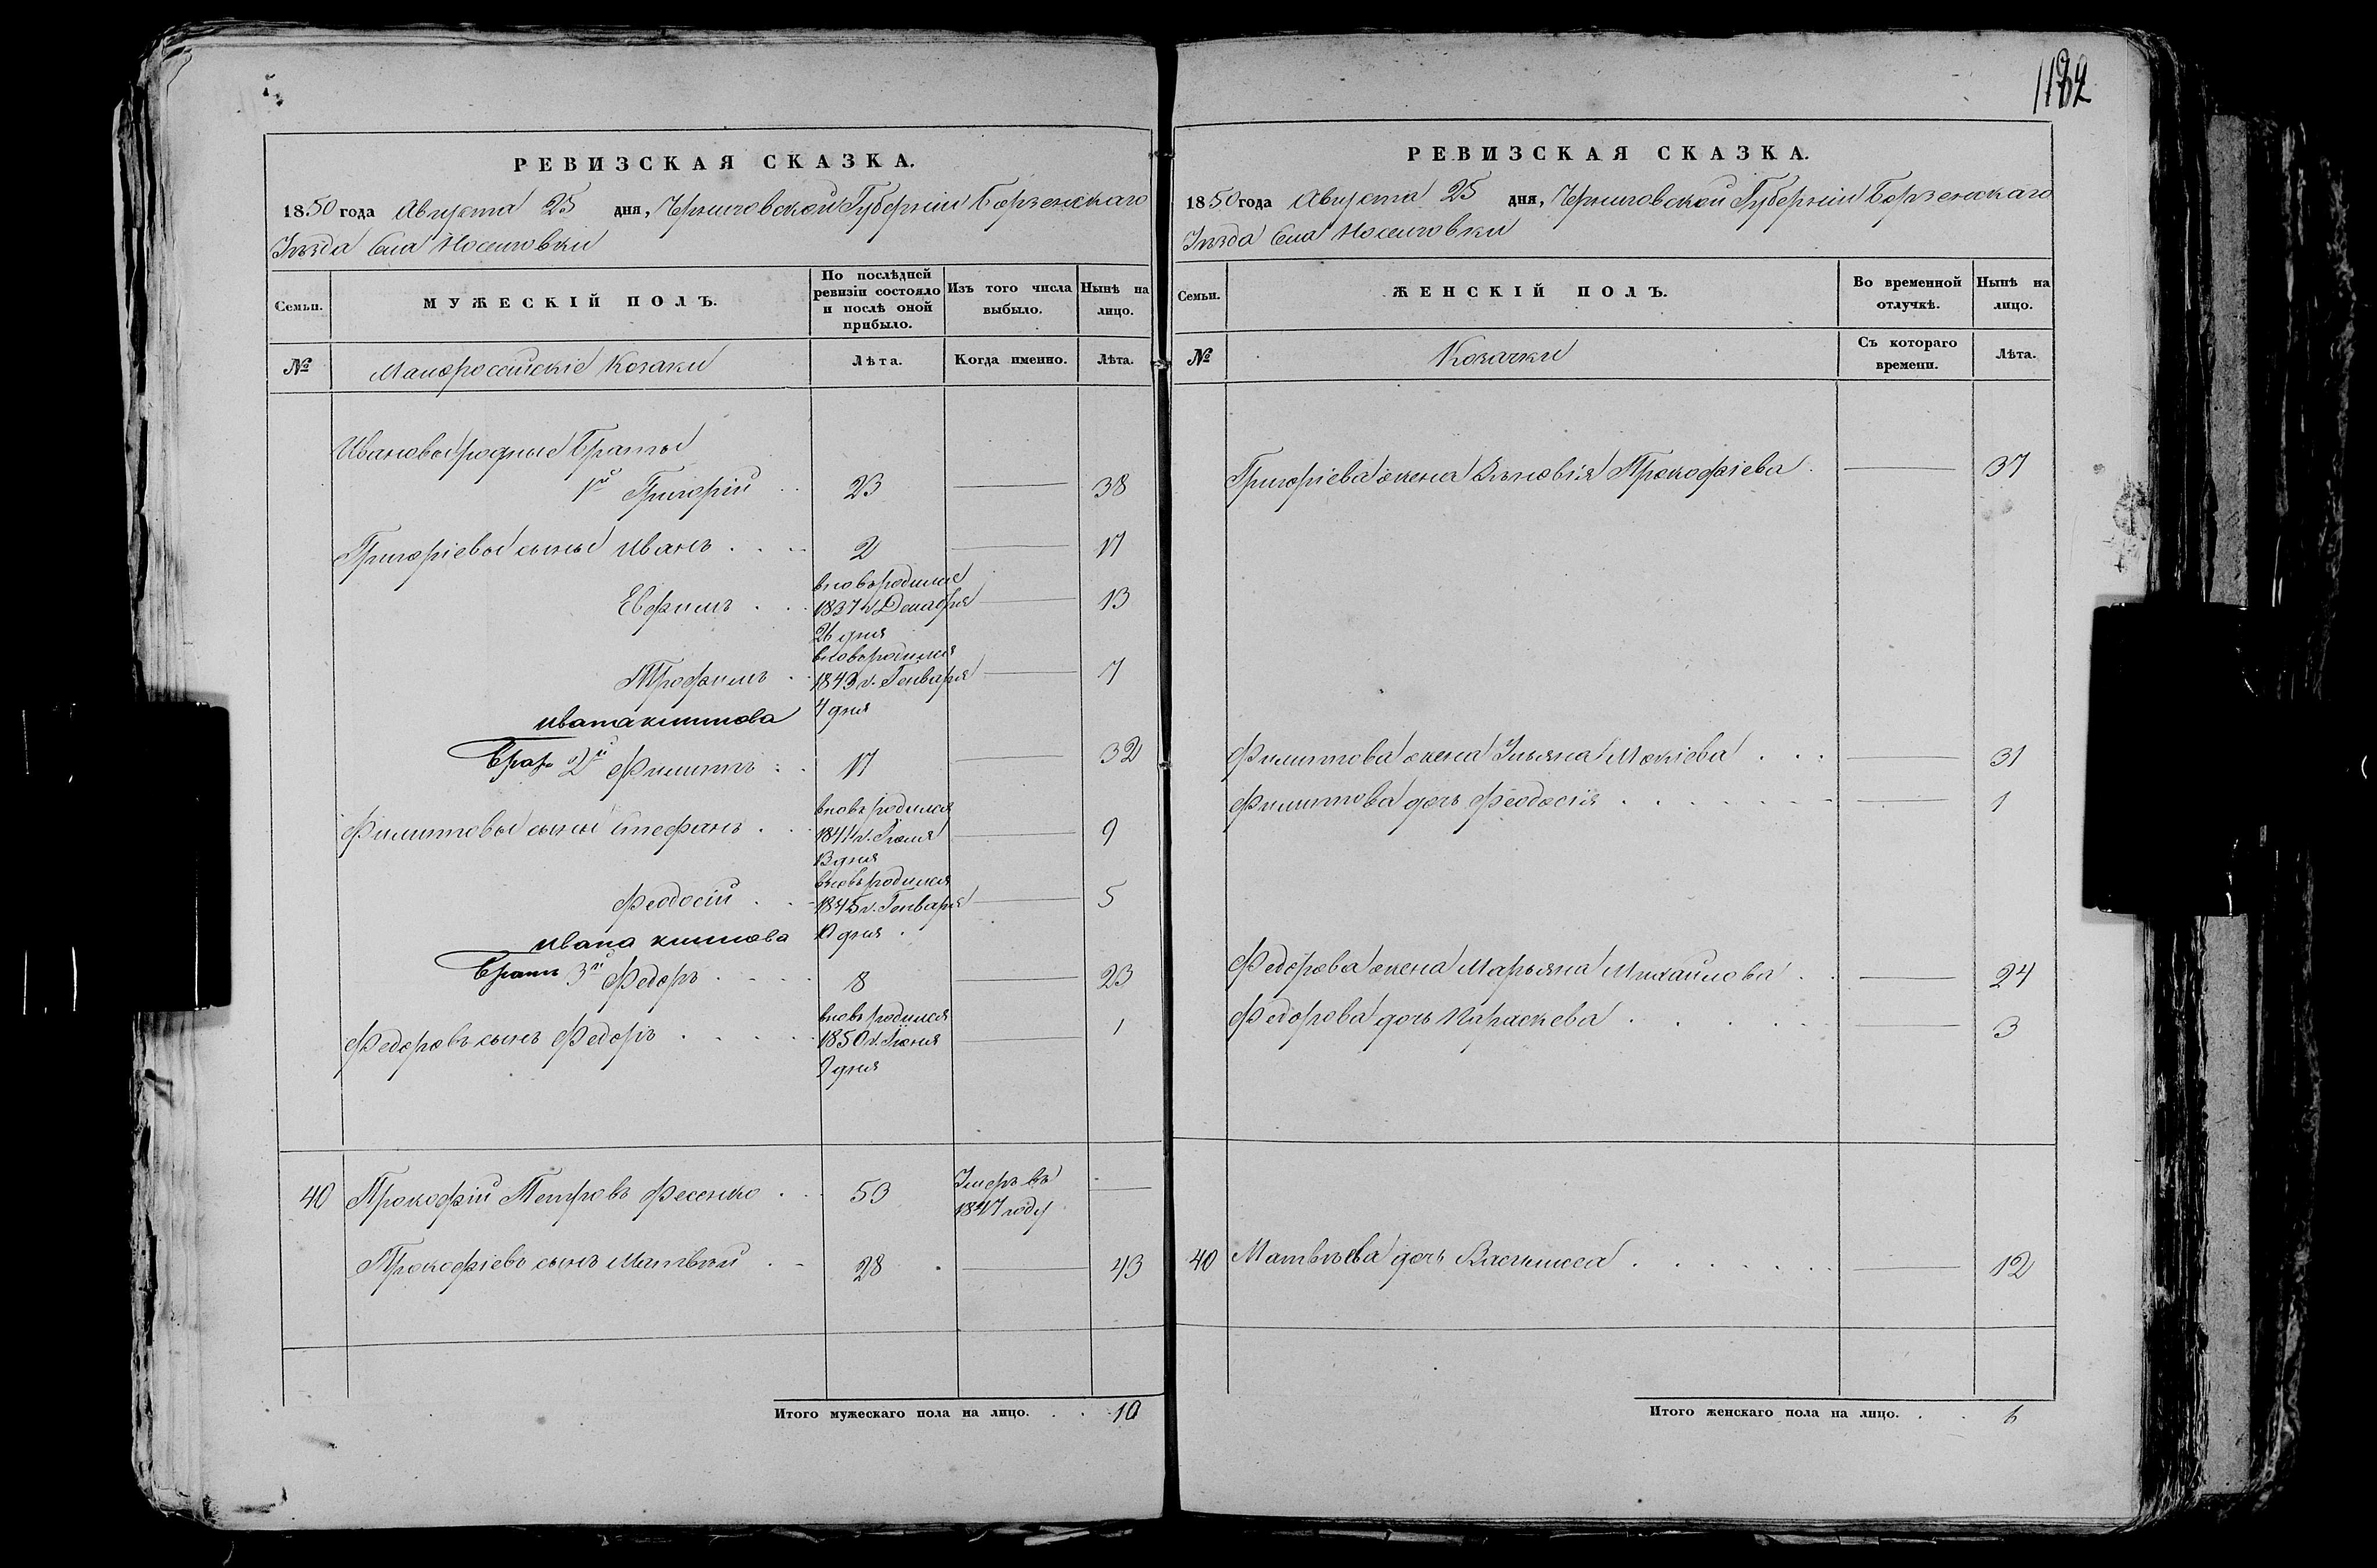 РЕВИЗСКАЯ СКАЗКА.
1850 года Августа 25 дня, Черниговской Губерніи Борзенскаго
Уѣзда Села Носеловки
Семьи.
МУЖЕСКІЙ ПОЛЪ.
По послѣдней ревизіи состояло и послѣ оной прибыло.
Изъ того числа выбыло.
Нынѣ на лицо.
№
Малороссійскіе Козаки
Лѣта.
Когда именно.
Лѣта.
Ивановы родные Братья
1й Григорій 23 — 38
Григоріевы сыны Иванъ 2 — 17
Евфимъ вновь родился 1837 г. Декабря 26 дня — 13
Трофимъ вновь родился 1843 г. Генваря 4 дня — 7
Ивана
Брат 2й Филиппъ 17 — 32
Филипповы сыны Стефанъ вновь родился 1841 г. Іюля 13 дня — 9
Феодосій вновь родился 1845 г. Генваря 11 дня — 5
Ивана
Братъ 3й Федоръ 8 — 23
Федоровъ сынъ Федоръ вновь родился 1850 г. Іюня 9 дня — 1
40 Прокофій Петровъ Фесенко 53 Умеръ въ 1847 году —
Прокофіевъ сынъ Матвѣй 28 — 43
Итого мужескаго пола на лицо. 10
РЕВИЗСКАЯ СКАЗКА.
1850 года Августа 25 дня, Черниговской Губерніи Борзенскаго
Уѣзда Села Носеловки
Семьи.
ЖЕНСКІЙ ПОЛЪ.
Во временной отлучкѣ.
Нынѣ на лицо.
№
Козачки
Съ котораго времени.
Лѣта.
Григоріева жена Зѣновія Прокофіева — 37
Филиппова жена Ульяна Мокіева — 31
Филиппова дочь Феодосія — 1
Федорова жена Марьяна Михайлова — 24
Федорова дочь Параскева — 3
40 Матвѣева дочь Василиса — 12
Итого женскаго пола на лицо. 6